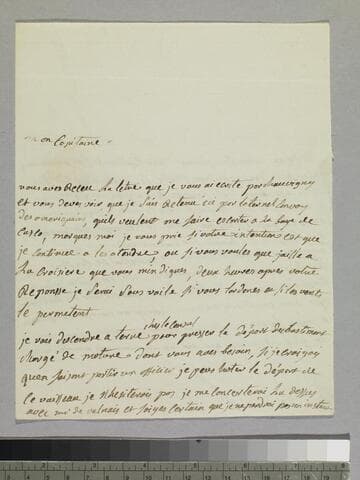 mon Capitaine
vous aves Receu La letre que je vous ai ecrite par
et vous deves voir que je suis Retenu ici par
des ameriquain, qu'ils veulent me faire escorter a la
mon je vous prie si votre intention est que
je continue a les atendre, ou si vous voules que jaille a
La Croisiere que vous m'indiques, deux heures apres votre
Reponsse je serai sous voile si vous l'ordones et si les vents
le permetent
je vais dessendre a terre pour presser le depart du bastiment
chargé de mature dont vous aves besoin, si je croyois
qu'en faisant partir un officier je peus hater le depart de
ce vaisseau je n'hesiterois pas je me concerterai La dessus
avec mr de et soiyes certain que je ne perdrai pas un instan